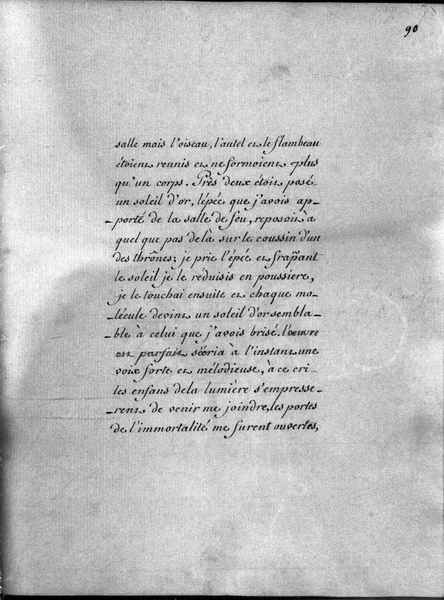 90
salle mais l'oiseau, l'autel et le flambeau
étoient reunis et ne formoient plus
qu'un corps. Près deux étoit posé
un soleil d'or, l'épée que j'avois ap-
-porté de la salle de feu, reposoit a
quelque pas dela sur le coussin d'un
des thrônes; je pris l'épée et frapant
le soleil je le reduisis en poussiere,
je le touchai ensuite et chaque mo-
-lécule devint un soleil d'or sembla-
-ble à celui que j'avois brisé. l'œuvre
est parfait, sécria à l'instant une
voix forte et mélodieuse, à ce cri
les enfans dela lumière s'empresse-
-rent de venir me joindre, les portes
de l'immortalité me furent ouvertes,